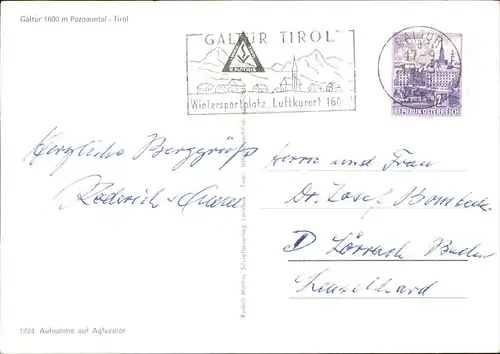 Galtür 1600 m Paznauntal - Tirol
GALTÜR TIROL
Wintersportplatz, Luftkurort 160
GALTÜR
17-9
REPUBLIK ÖSTERREICH
Herzliche Berggrüße
Roderich +
Herrn und Frau
Dr. Josef Bombeck
D Lörrach Baden
1324 Aufnahme auf Agfacolor